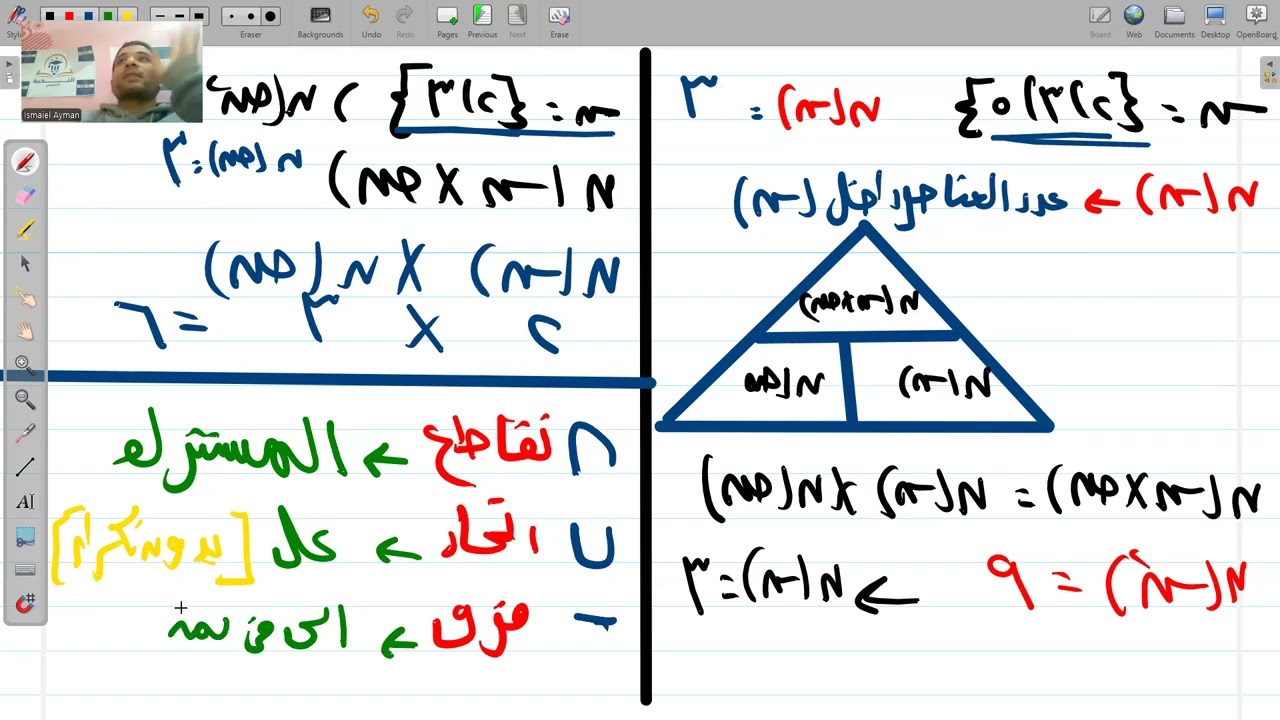 Styl
Eraser
Backgrounds
Undo
Redo
Pages
Previous
Next
Erase
Board
Web
Documents
Desktop
OpenBoard
Ismaiel Ayman
س = {٢، ٣، ٥}
ن (س) = ٣
ن (س) ← عدد العناصر داخل (س)
ن (س × ص)
ن (س)
ن (ص)
ن (س × ص) = ن (س) × ن (ص)
ن (س²) = ٩ ← ن (س) = ٣
س = {٢، ٣} ، ن (ص)
ن (ص) = ٣
ن (س × ص)
ن (س) × ن (ص)
٢ × ٣ = ٦
∩ تقاطع ← المشترك
∪ اتحاد ← كل [بدون تكرار]
- فرق ←
AI